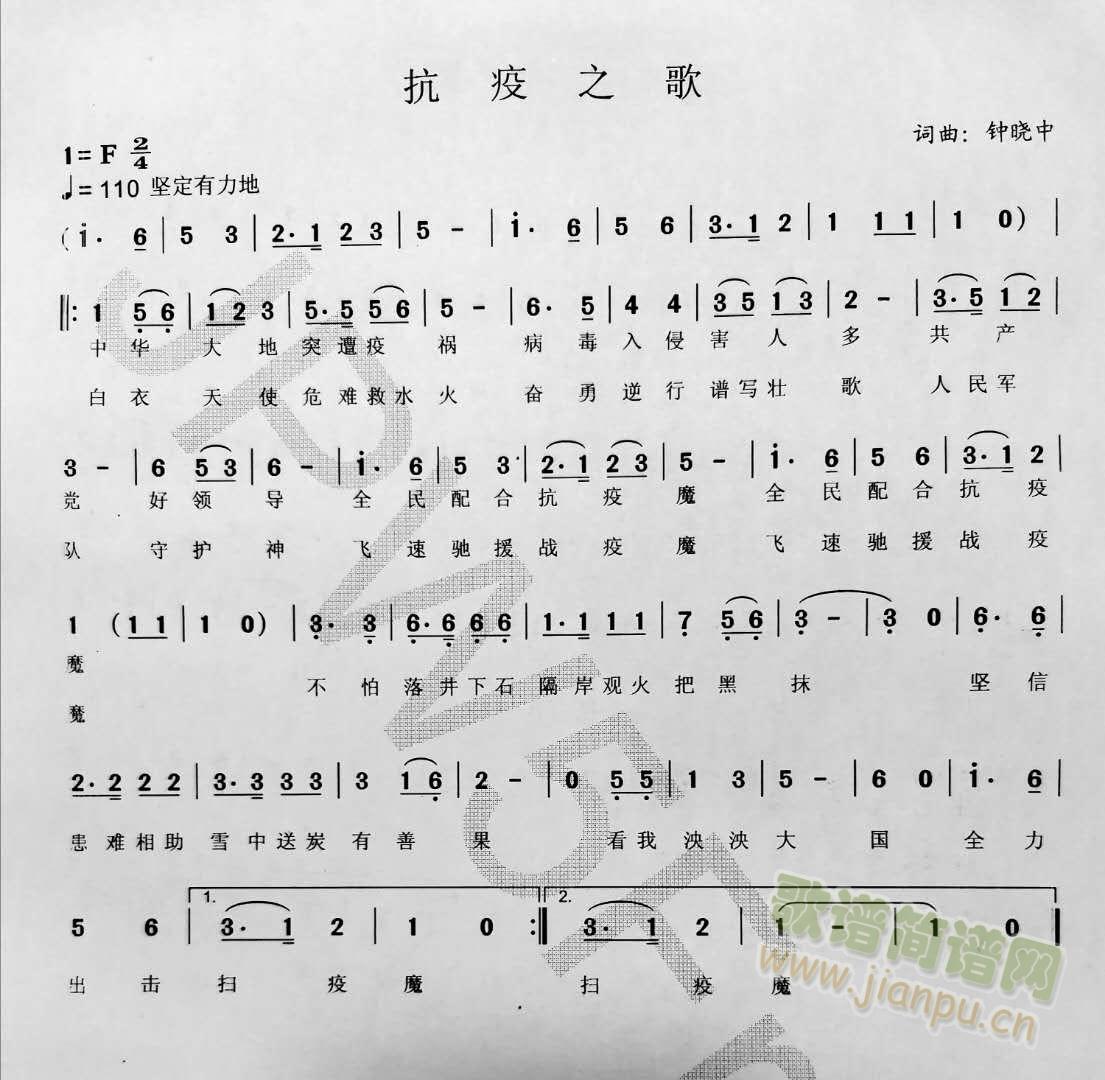 抗疫之歌
词曲：钟晓中
1=F 2/4
♩=110 坚定有力地
(i· 6 | 5 3 | 2·1 2 3 | 5 - | i· 6 | 5 6 | 3·1 2 | 1 1 1 | 1 0) |
‖: 1 5 6 | 1 2 3 | 5·5 5 6 | 5 - | 6· 5 | 4 4 | 3 5 1 3 | 2 - | 3·5 1 2 |
中华大地突遭疫祸病毒入侵害人多共产
白衣天使危难救水火奋勇逆行谱写壮歌人民军
3 - | 6 5 3 | 6 - | i· 6 | 5 3 | 2·1 2 3 | 5 - | i· 6 | 5 6 | 3·1 2 |
党好领导全民配合抗疫魔全民配合抗疫
队守护神飞速驰援战疫魔飞速驰援战疫
1 (1 1 | 1 0) | 3· 3 | 6·6 6 6 | 1·1 1 1 | 7 5 6 | 3 - | 3 0 | 6· 6 |
魔 不怕落井下石隔岸观火把黑抹坚信
魔
2·2 2 2 | 3·3 3 3 | 3 1 6 | 2 - | 0 5 5 | 1 3 | 5 - | 6 0 | i· 6 |
患难相助雪中送炭有善果看我泱泱大国全力
1. 2.
5 6 | 3·1 2 | 1 0 :‖ 3·1 2 | 1 - | 1 0 ‖
出击扫疫魔扫疫魔
歌谱简谱网
www.jianpu.cn